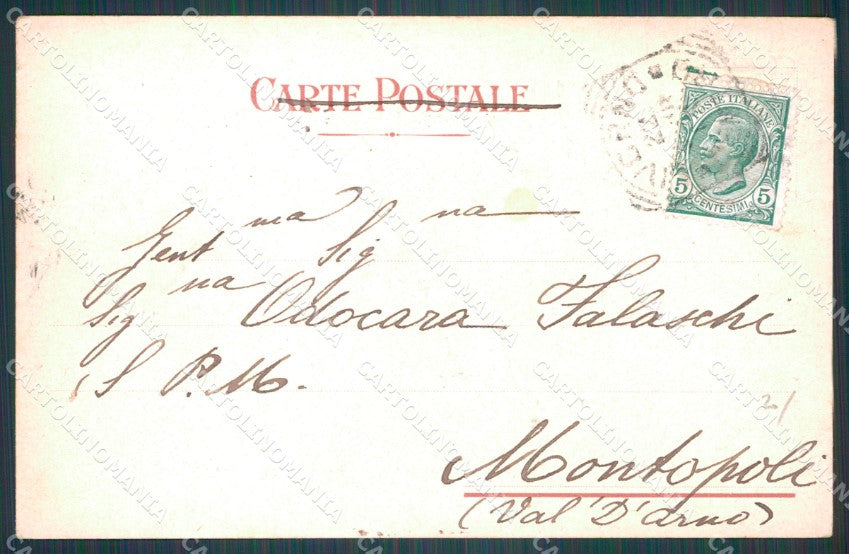 CARTE POSTALE
POSTE ITALIANE
5 CENTESIMI 5
LIVORNO
Gent ma Sig na
Sig na Odocara Falaschi
S P.M.
Montopoli
(Val D'arno)
21
CARTOLINOMANIA